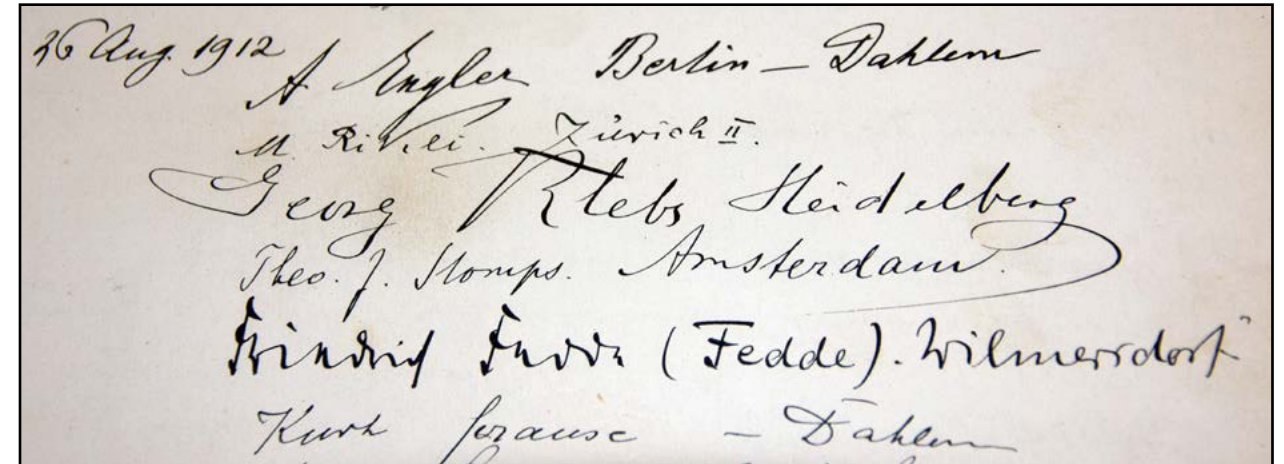 26 Aug. 1912 A Engler Berlin – Dahlem
M. Rikli. Zürich II.
Georg Klebs Heidelberg
Theo. J. Stomps. Amsterdam.
Friedrich Fedde (Fedde). Wilmersdorf
Kurt Krause – Dahlem